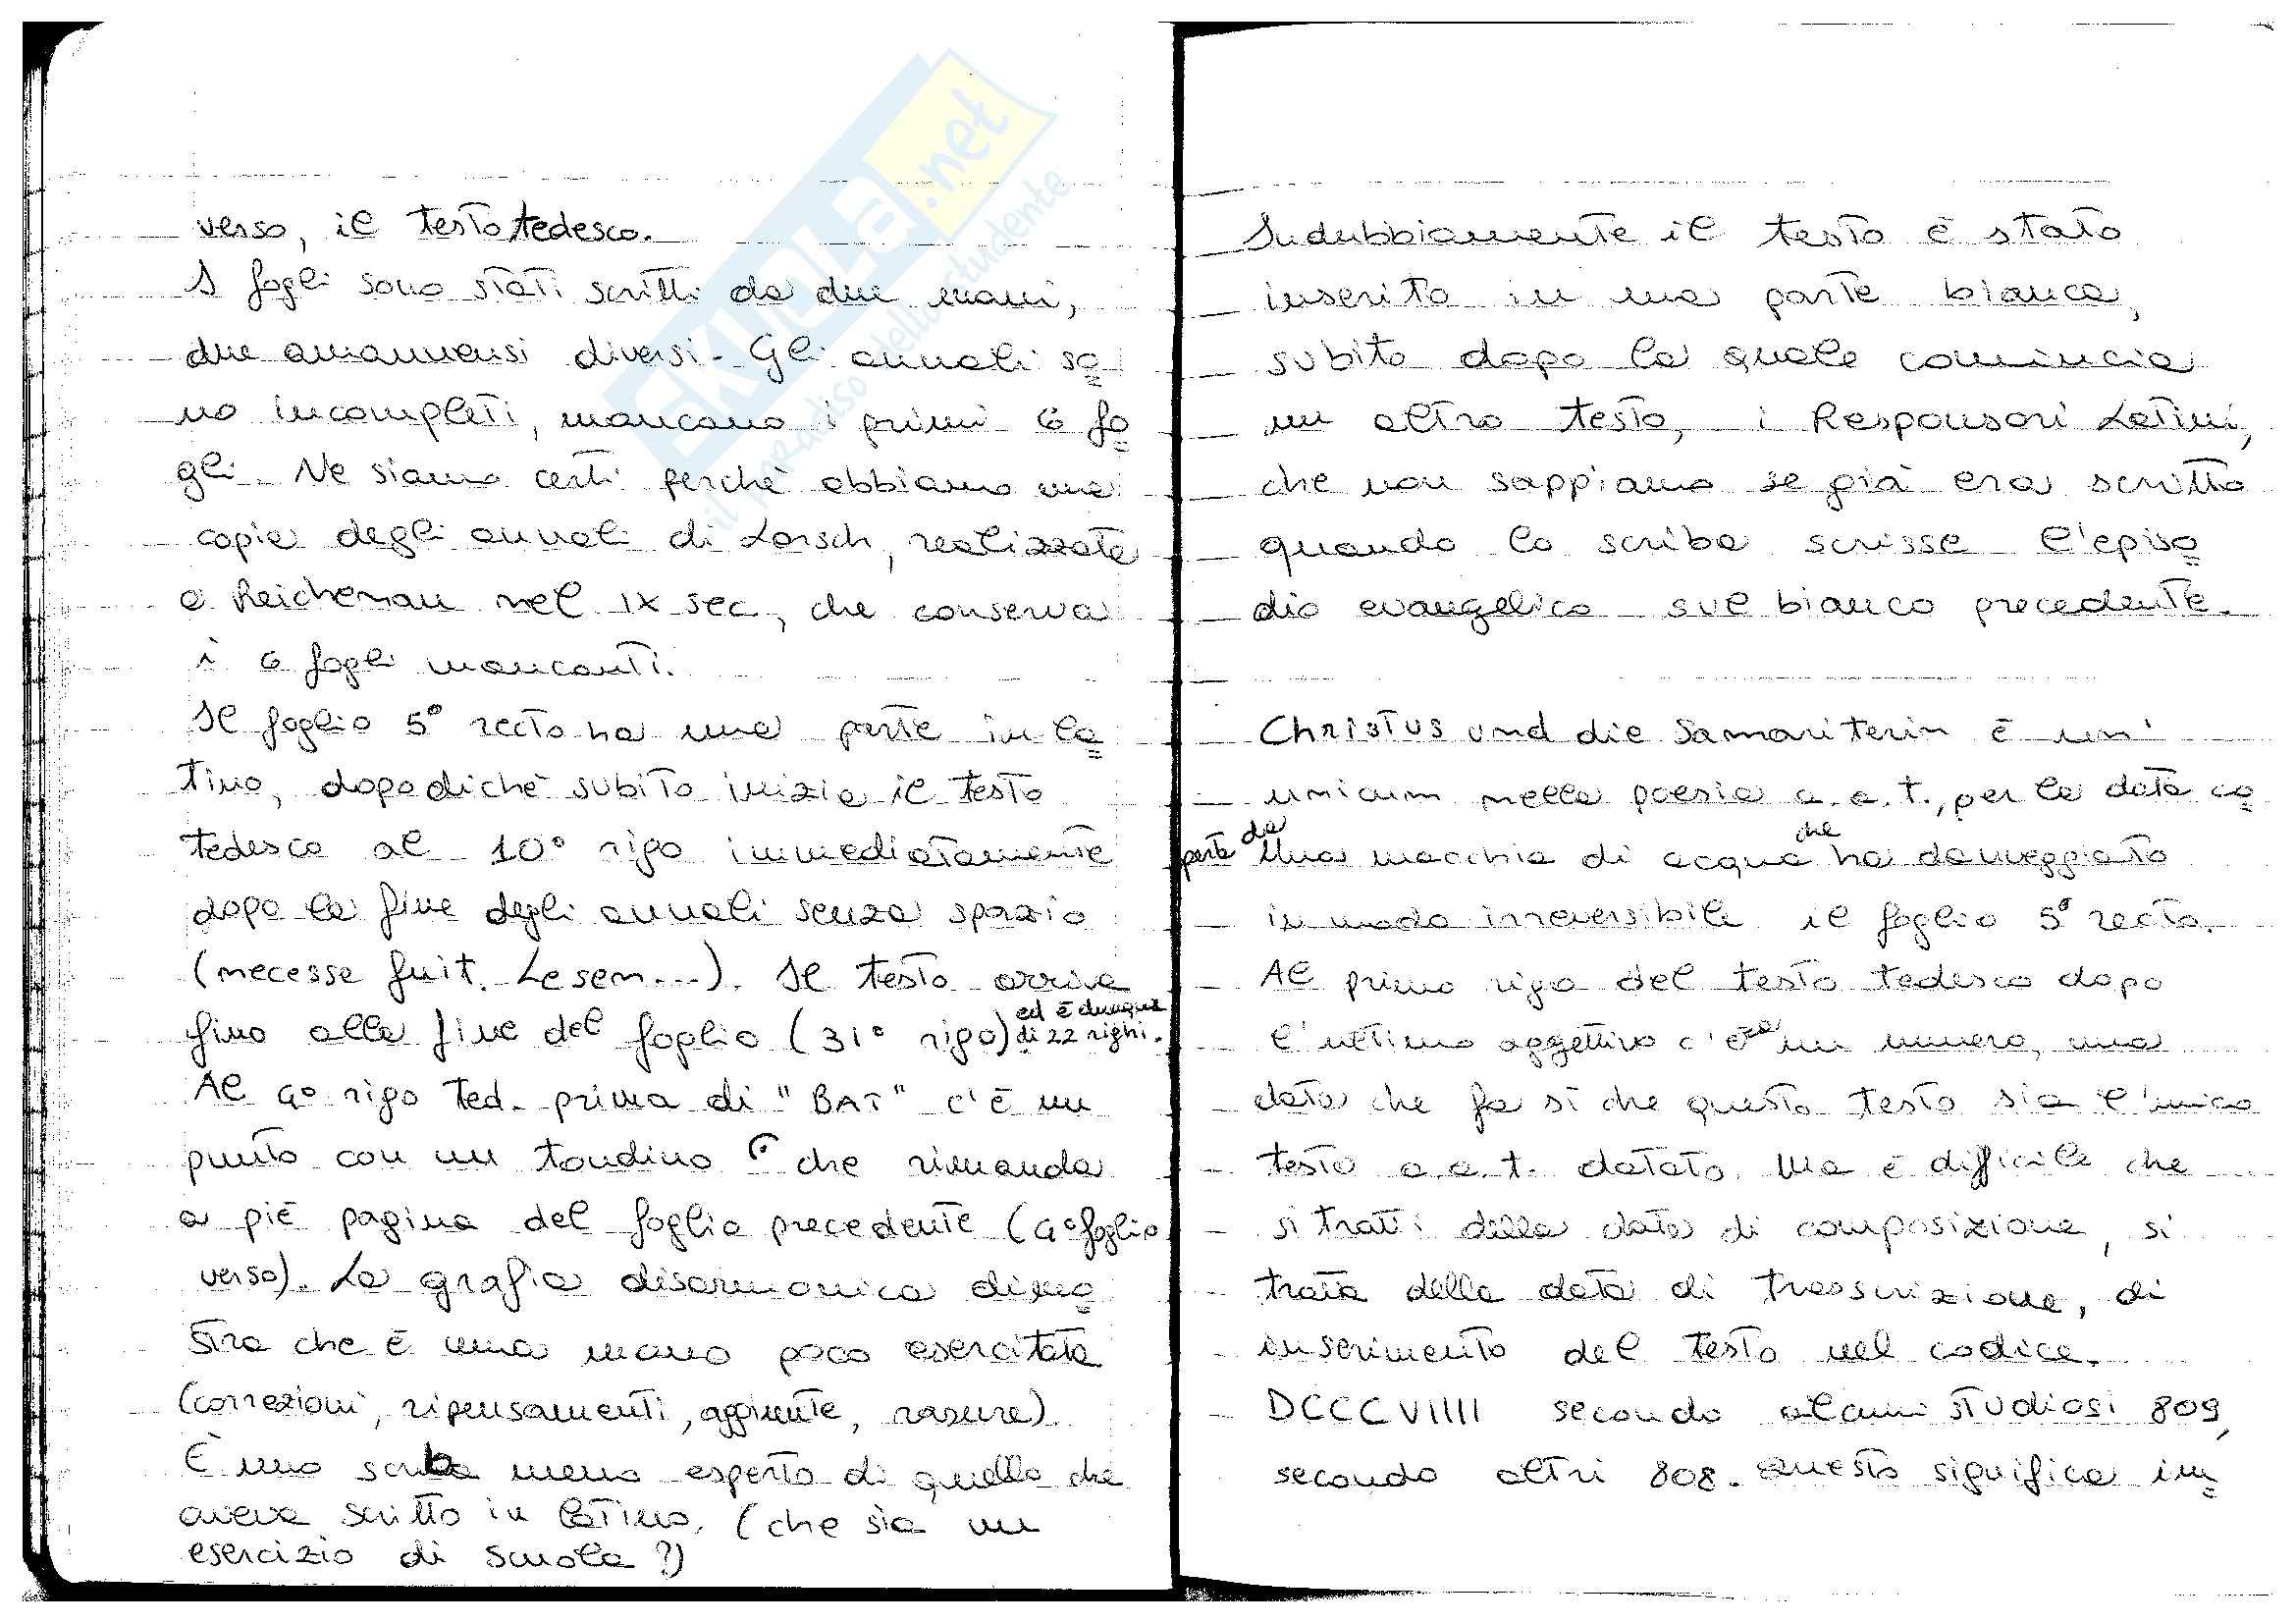 verso, il testo tedesco.
I fogli sono stati scritti da due mani,
due amanuensi diversi. Gli annali so=
no incompleti, mancano i primi 6 fo=
gli. Ne siamo certi perchè abbiamo una
copia degli annali di Lorsch, realizzata
a Reichenau nel IX sec., che conserva
i 6 fogli mancanti.
Il foglio 5° recto ha una parte in la=
tino, dopodiché subito inizia il testo
tedesco al 10° rigo immediatamente
dopo la fine degli annali senza spazio
(necesse fuit. Lesen...). Il testo arriva
fino alla fine del foglio (31° rigo) ed è dunque di 22 righi.
Al 4° rigo ted. prima di "BAT" c'è un
punto con un tondino che rimanda
a piè pagina del foglio precedente (4° foglio
verso). La grafia disarmonica dimo=
stra che è una mano poco esercitata
(correzioni, ripensamenti, aggiunte, rasure)
È uno scriba meno esperto di quello che
aveva scritto in latino. (che sia un
esercizio di scuola?)
Indubbiamente il testo è stato
inserito in una parte bianca,
subito dopo la quale comincia
un altro testo, i Responsori Latini,
che non sappiamo se già era scritto
quando lo scriba scrisse l'episo=
dio evangelico sul bianco precedente.
Christus und die Samariterin è un'
unicum nella poesia a.a.t., per la data co=
perta da una macchia di acqua che ha danneggiato
in modo irreversibile il foglio 5° recto.
Al primo rigo del testo tedesco dopo
l'ultimo aggettivo c'era un numero, una
data che fa sì che questo testo sia l'unico
testo a.a.t. datato. Ma è difficile che
si tratti della data di composizione, si
tratta della data di trascrizione, di
inserimento del testo nel codice.
DCCCVIIII secondo alcuni studiosi 809,
secondo altri 808. Questo significa im=
SKUOLA.net
il paradiso dello studente